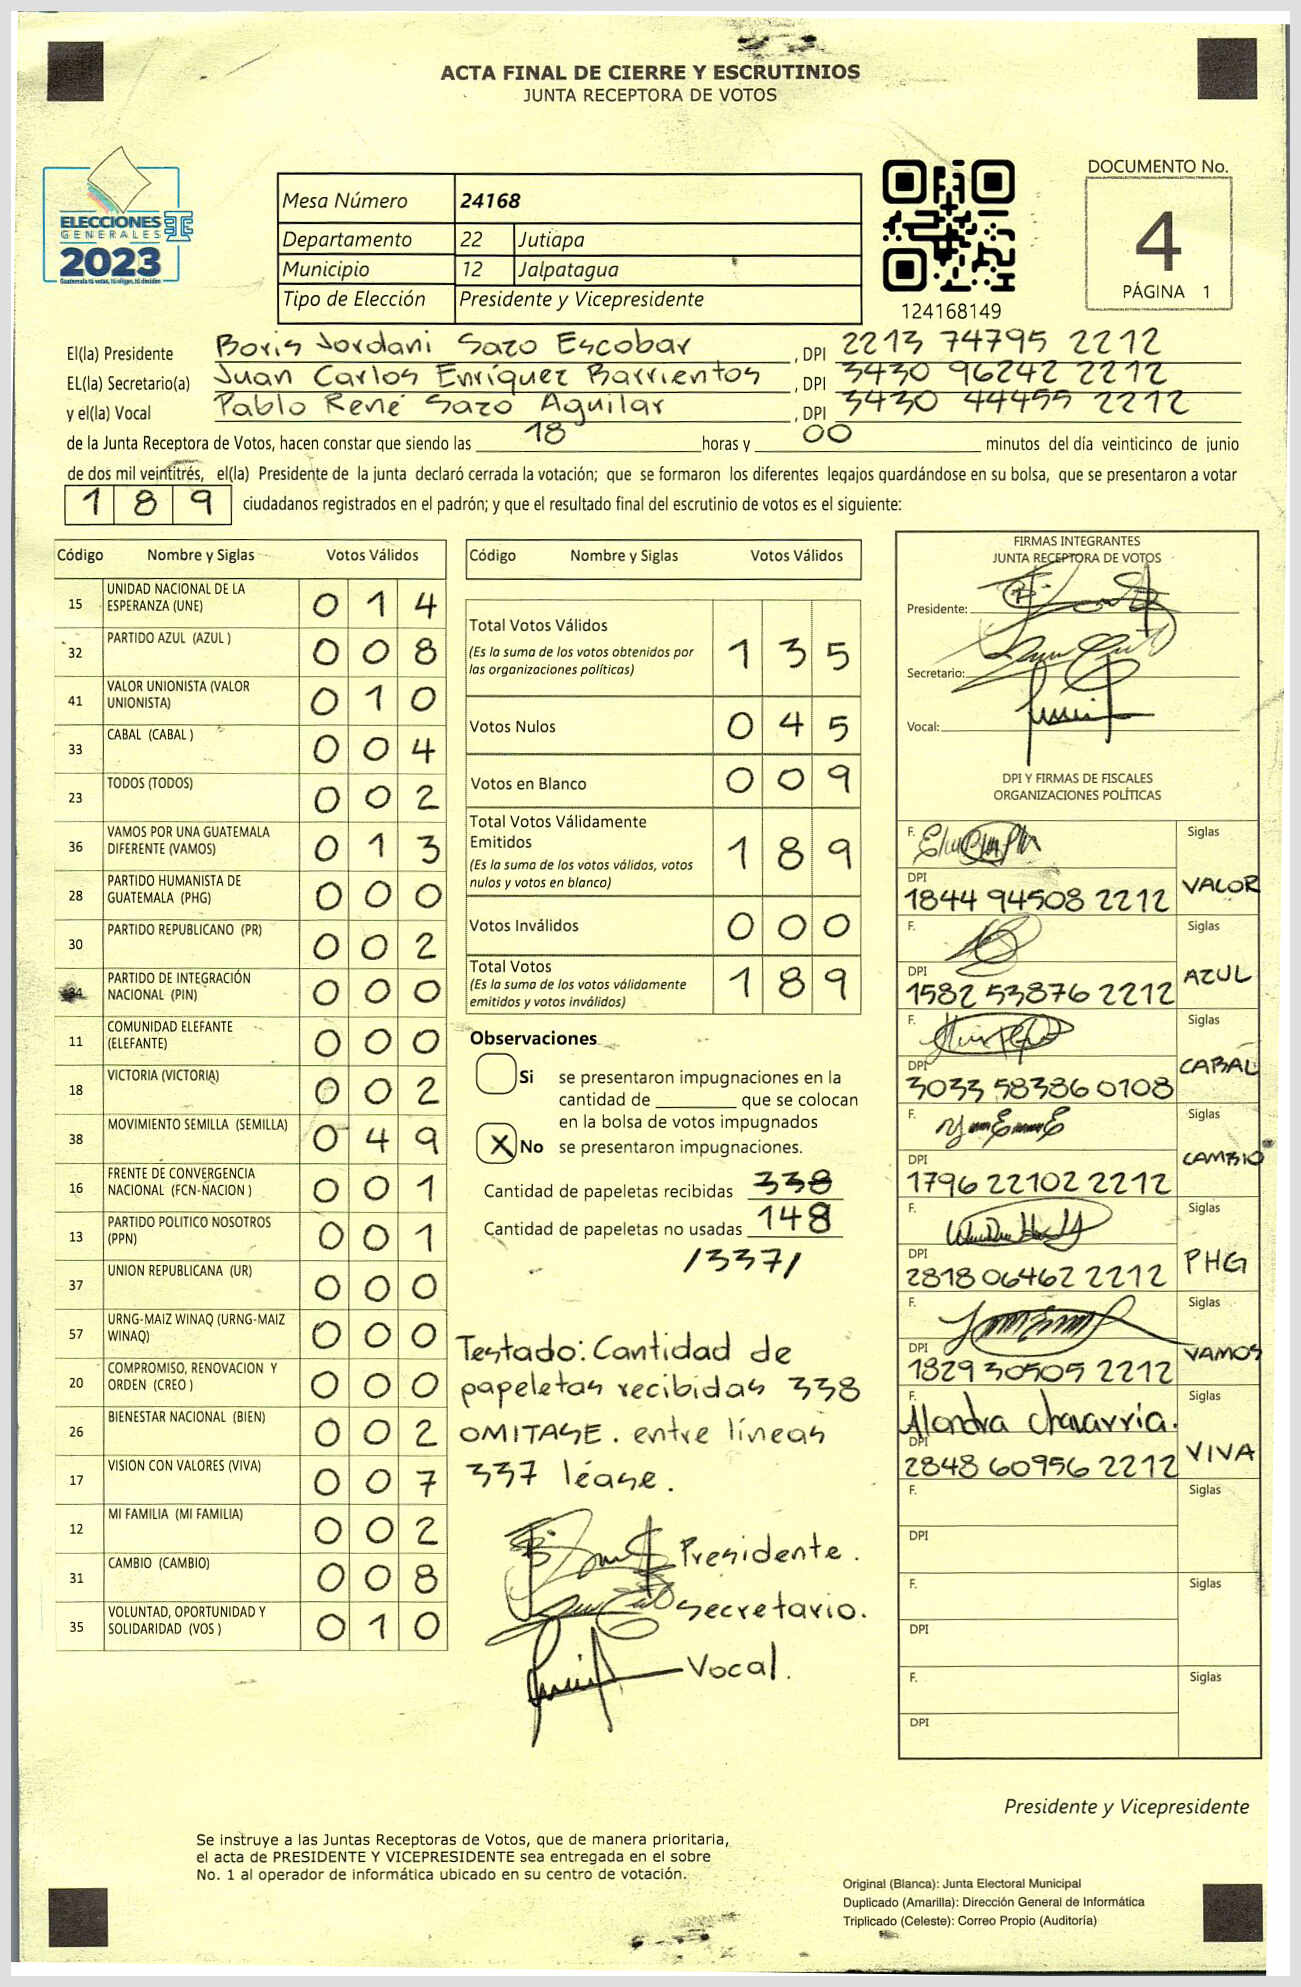 ACTA FINAL DE CIERRE Y ESCRUTINIOS
JUNTA RECEPTORA DE VOTOS
ELECCIONES
GENERALES
2023
Guatemala tú votas, tú eliges, tú decides
Mesa Número 24168
Departamento 22 Jutiapa
Municipio 12 Jalpatagua
Tipo de Elección Presidente y Vicepresidente
124168149
DOCUMENTO No.
4
PÁGINA 1
El(la) Presidente Boris Jordani Sazo Escobar, DPI 2213 74795 2212
EL(la) Secretario(a) Juan Carlos Enríquez Barrientos, DPI 3430 96242 2212
y el(la) Vocal Pablo René Sazo Aguilar, DPI 3430 44455 2212
de la Junta Receptora de Votos, hacen constar que siendo las 18 horas y 00 minutos del día veinticinco de junio
de dos mil veintitrés, el(la) Presidente de la junta declaró cerrada la votación; que se formaron los diferentes legajos guardándose en su bolsa, que se presentaron a votar
189 ciudadanos registrados en el padrón; y que el resultado final del escrutinio de votos es el siguiente:
Código Nombre y Siglas Votos Válidos
15 UNIDAD NACIONAL DE LA ESPERANZA (UNE) 014
32 PARTIDO AZUL (AZUL ) 008
41 VALOR UNIONISTA (VALOR UNIONISTA) 010
33 CABAL (CABAL ) 004
23 TODOS (TODOS) 002
36 VAMOS POR UNA GUATEMALA DIFERENTE (VAMOS) 013
28 PARTIDO HUMANISTA DE GUATEMALA (PHG) 000
30 PARTIDO REPUBLICANO (PR) 002
34 PARTIDO DE INTEGRACIÓN NACIONAL (PIN) 000
11 COMUNIDAD ELEFANTE (ELEFANTE) 000
18 VICTORIA (VICTORIA) 002
38 MOVIMIENTO SEMILLA (SEMILLA) 049
16 FRENTE DE CONVERGENCIA NACIONAL (FCN-NACION ) 001
13 PARTIDO POLITICO NOSOTROS (PPN) 001
37 UNION REPUBLICANA (UR) 000
57 URNG-MAIZ WINAQ (URNG-MAIZ WINAQ) 000
20 COMPROMISO, RENOVACION Y ORDEN (CREO ) 000
26 BIENESTAR NACIONAL (BIEN) 002
17 VISION CON VALORES (VIVA) 007
12 MI FAMILIA (MI FAMILIA) 002
31 CAMBIO (CAMBIO) 008
35 VOLUNTAD, OPORTUNIDAD Y SOLIDARIDAD (VOS ) 010
Código Nombre y Siglas Votos Válidos
Total Votos Válidos 135
(Es la suma de los votos obtenidos por
las organizaciones políticas)
Votos Nulos 045
Votos en Blanco 009
Total Votos Válidamente
Emitidos 189
(Es la suma de los votos válidos, votos
nulos y votos en blanco)
Votos Inválidos 000
Total Votos 189
(Es la suma de los votos válidamente
emitidos y votos inválidos)
Observaciones
Si se presentaron impugnaciones en la
cantidad de ________ que se colocan
en la bolsa de votos impugnados
X No se presentaron impugnaciones.
Cantidad de papeletas recibidas 338
Cantidad de papeletas no usadas 148
/337/
Testado: Cantidad de
papeletas recibidas 338
OMITASE. entre líneas
337 léase.
Presidente.
Secretario.
Vocal.
FIRMAS INTEGRANTES
JUNTA RECEPTORA DE VOTOS
Presidente:
Secretario:
Vocal:
DPI Y FIRMAS DE FISCALES
ORGANIZACIONES POLÍTICAS
F. Siglas
DPI VALOR
1844 94508 2212
F. Siglas
DPI AZUL
1582 53876 2212
F. Siglas
DPI CABAL
3033 58386 0108
F. Siglas
DPI CAMBIO
1796 22102 2212
F. Siglas
DPI PHG
2818 06462 2212
F. Siglas
DPI VAMOS
1829 30505 2212
F. Siglas
Alondra Chavarría.
DPI VIVA
2848 60956 2212
F. Siglas
DPI
F. Siglas
DPI
F. Siglas
DPI
Presidente y Vicepresidente
Se instruye a las Juntas Receptoras de Votos, que de manera prioritaria,
el acta de PRESIDENTE Y VICEPRESIDENTE sea entregada en el sobre
No. 1 al operador de informática ubicado en su centro de votación.
Original (Blanca): Junta Electoral Municipal
Duplicado (Amarilla): Dirección General de Informática
Triplicado (Celeste): Correo Propio (Auditoría)